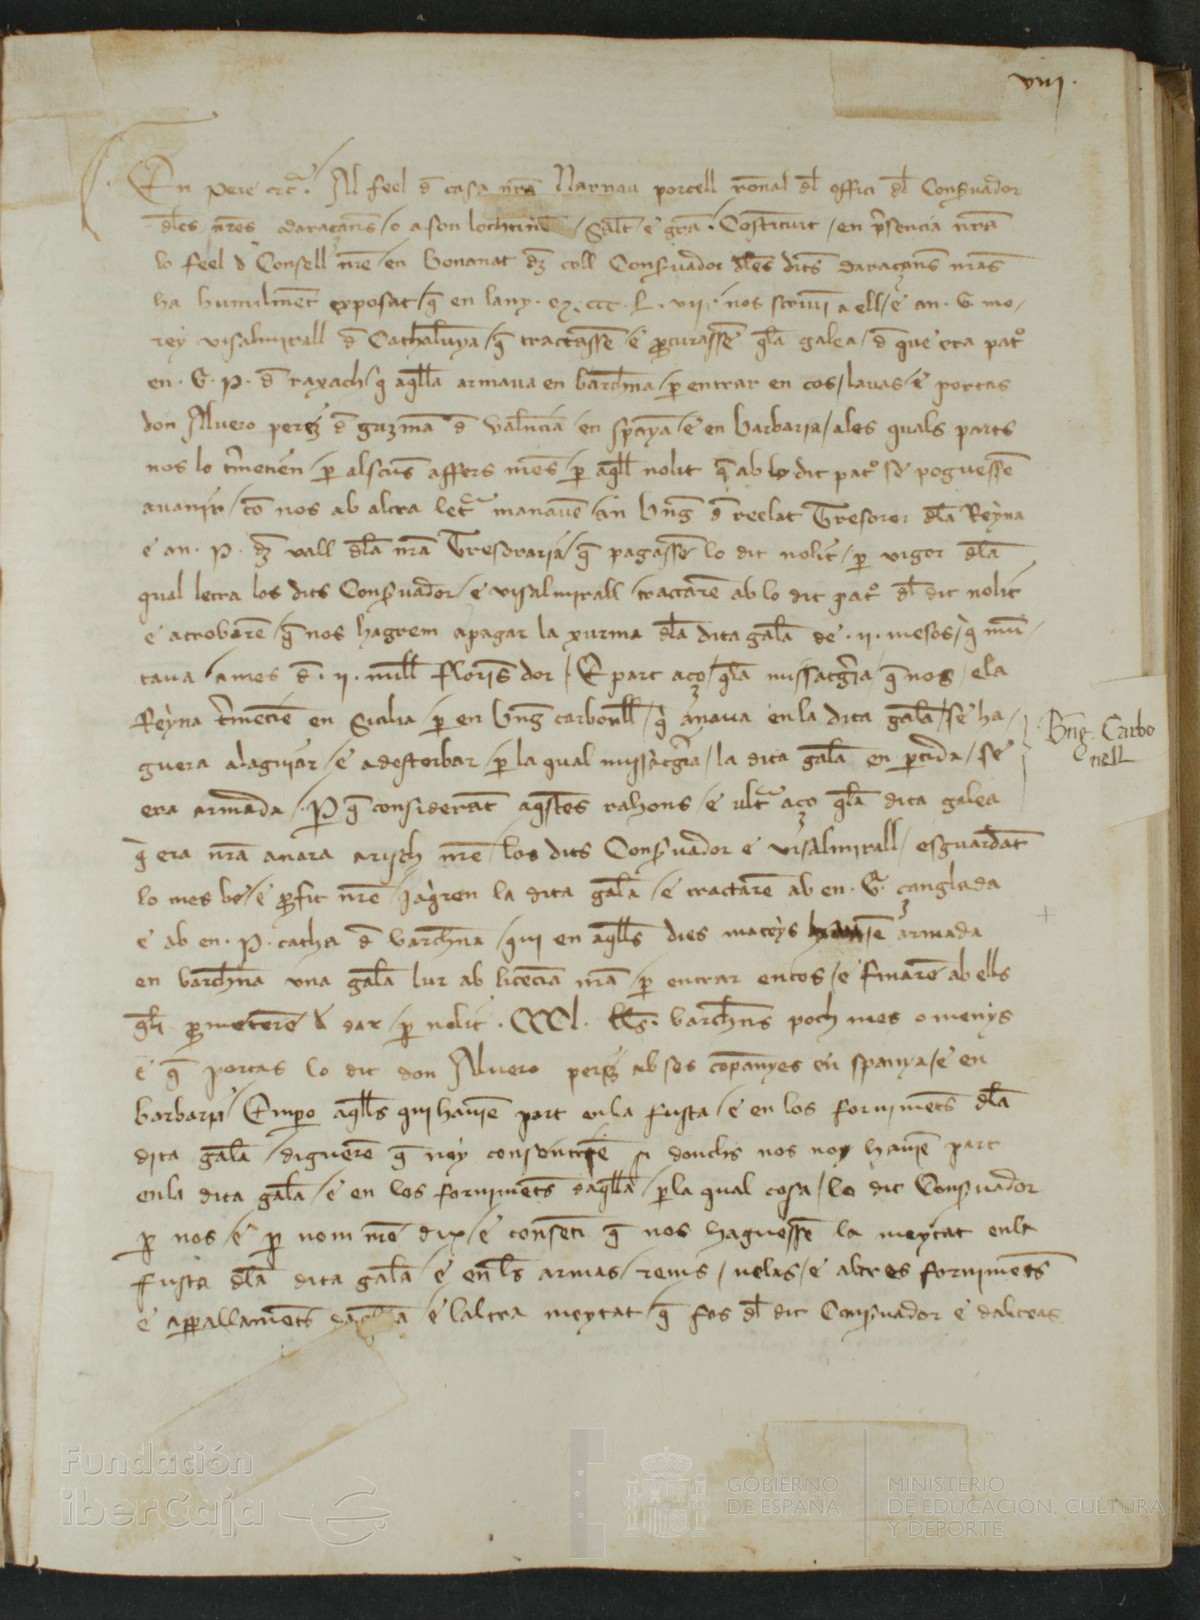 viii.
En Pere etc. Al feel d casa nra Narnau porcell rōnal dl offici dl Conſuador
dles nres daraçans / o a son lochtinē / Salt e gra. Costituit / en p̄sencia nra
lo feel d Consell nre en bonanat dz coll Conſuador dles dits daraçans nras
ha humilmēt exposat / q̄ en lany . m . ccc . L . vii . nos scriui a ell / e an . G . mo-
rey visalmirall d Cathaluya / q̄ tractassē / e p̄curassē q̄la galea / d que era pat°
en . G . P . d rayach / q̄ aq̄lla armaua en barchna / p̄ entrar en cos / lauas / e portas
don Aluero perez d guzma d Valncia en spāya / e en barbaria / ales quals parts
nos lo tmetien / p̄ alscus affers nres / p̄ aq̄ll nolit q̄ ab lo dit pat° se poguessē
auanir / co nos ab altra letra manauē / an bng d reelat Tresorer dla Reyna
e an . P . dz vall dla nra Tresoraria / q̄ pagassē lo dit nolit / p̄ vigor dla
qual letra los dits Conſuador / e visalmirall / tractarē ab lo dit pat° dl dit nolit
e atrobarē / q̄ nos hagrem apagar la xurma dla dita gala de . ii . mesos / q̄ mū-
taua / ames d . ii . mill florīs dor / E part aço / q̄la missatgria / q̄ nos / e la
Reyna tmetiē en Sicilia / p̄ en bng carbonll / q̄ anaua en la dita gala / se ha-
guera alaguiar / e adestorbar / p̄ la qual missatgria / la dita gala en ptida / se
era armada / . P q̄ considerāt aq̄stes rahons / e ultra aço q̄la dita galea
q̄ era nra anara arisch nre / los dits Conſuador e visalmirall / esguardāt
lo mes be / e p̄fit nre / jaq̄ren la dita gala / e tractarē ab en . G . çanglada
e ab en . P . catha d barchna / qui en aq̄lls dies mateys hauiē armada
en barchna una gala lur ab licēcia nra / p̄ entrar en cos / e fmarē ab ells
p̄meterē d dar / p̄ nolit . CCCl . lls . barchns poch mes o menys
e q̄ portas lo dit don Aluero perez ab ses cōpanyes en spanya / e en
barbaria / Empo aq̄lls qui hauiē part en la fusta / e en los fornimēts dla
dita gala / digueren q̄ noy consentirē si donchs nos noy hauiē part
en la dita gala / e en los fornimēts daq̄lla / p̄ la qual cosa / lo dit Conſuador
p̄ nos / e p̄ nom nre dix / e consenti q̄ nos haguessē la meytat en la
fusta dla dita gala / e en ls armas / rems / uelas / e altres fornimēts
e apallamēts daq̄lla e laltra meytat / q̄ fos dl dit Conſuador e daltras
Bng. Carbo
nell
Fundación
iberCaja
GOBIERNO
DE ESPAÑA
MINISTERIO
DE EDUCACIÓN, CULTURA
Y DEPORTE